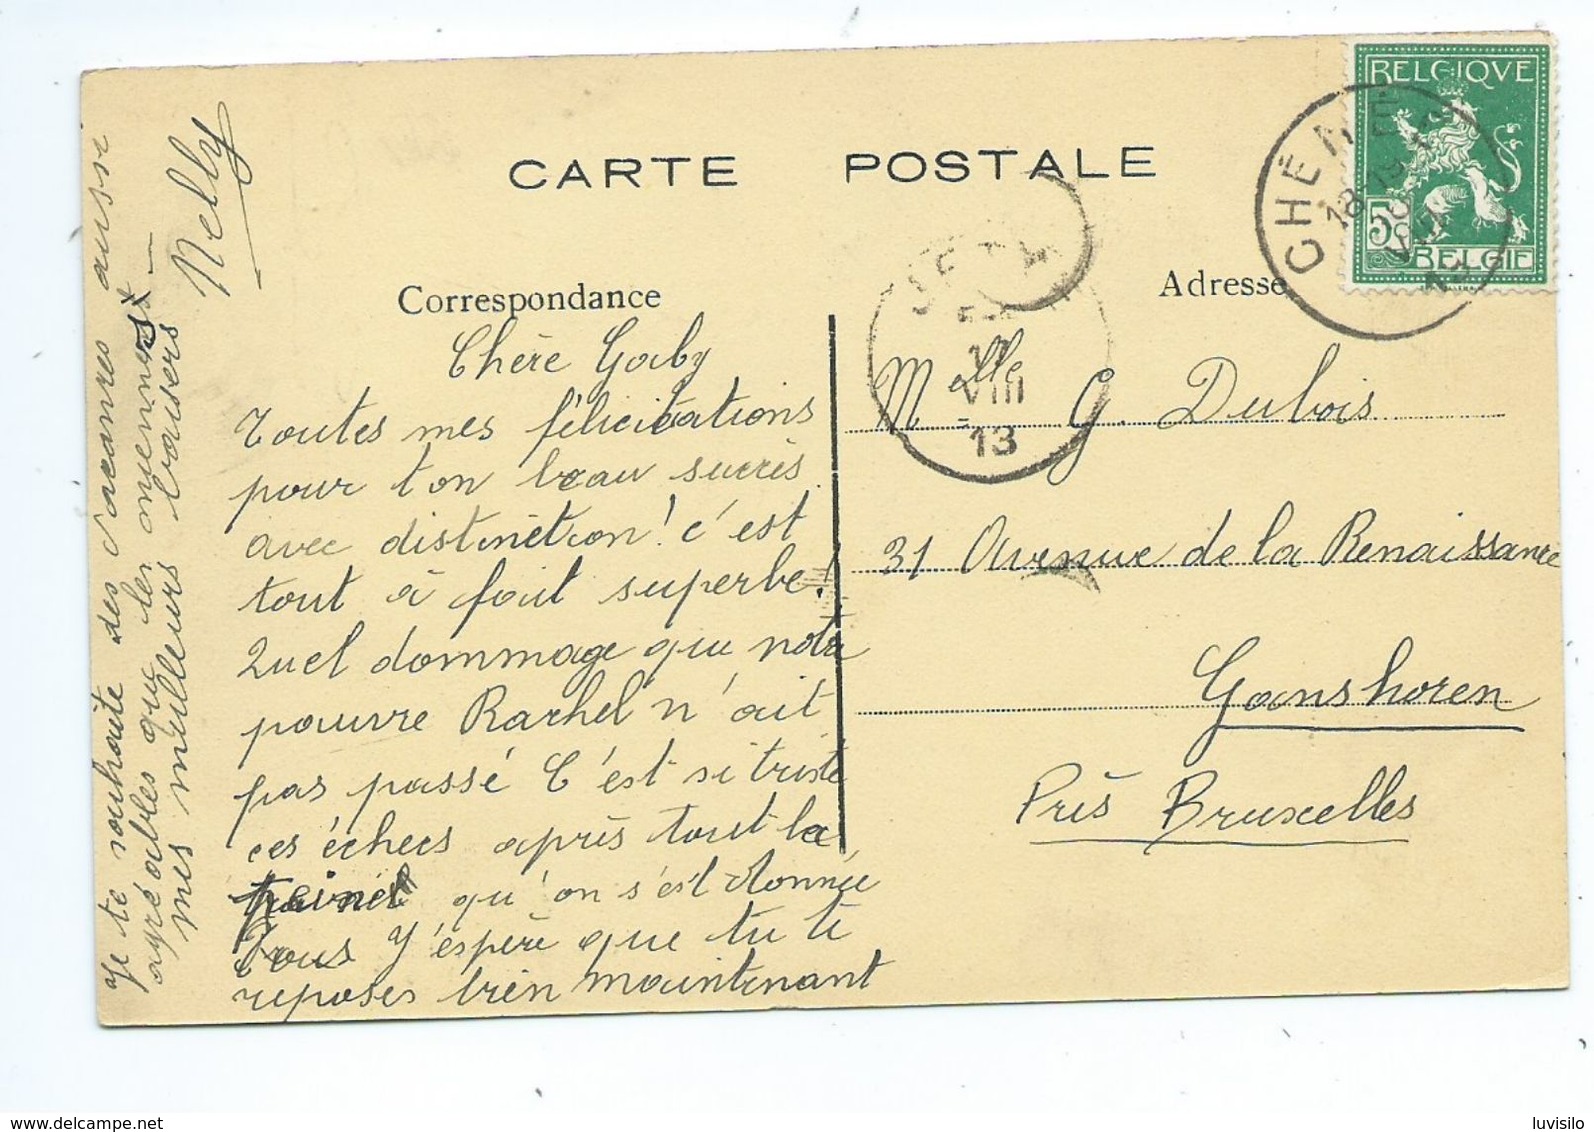 CARTE POSTALE
Correspondance
Adresse
BELGIQVE
5c
BELGIE
CHÊNÉE
18-19
VIII
13
JETTE
17
VIII
13
Chère Gaby
Toutes mes félicitations
pour ton beau succès
avec distinction! c'est
tout à fait superbe!
Quel dommage que notre
pauvre Rachel n'ait
pas passé C'est si triste
ces échecs après tout la
peine qu'on s'est donnée
J'espère que tu te
reposes bien maintenant
Je te souhaite des vacances aussi
agréables que les miennes
mes meilleurs baisers
Nelly
Melle G. Dubois
31 Avenue de la Renaissance
Ganshoren
Près Bruxelles
www.delcampe.net
luvisilo